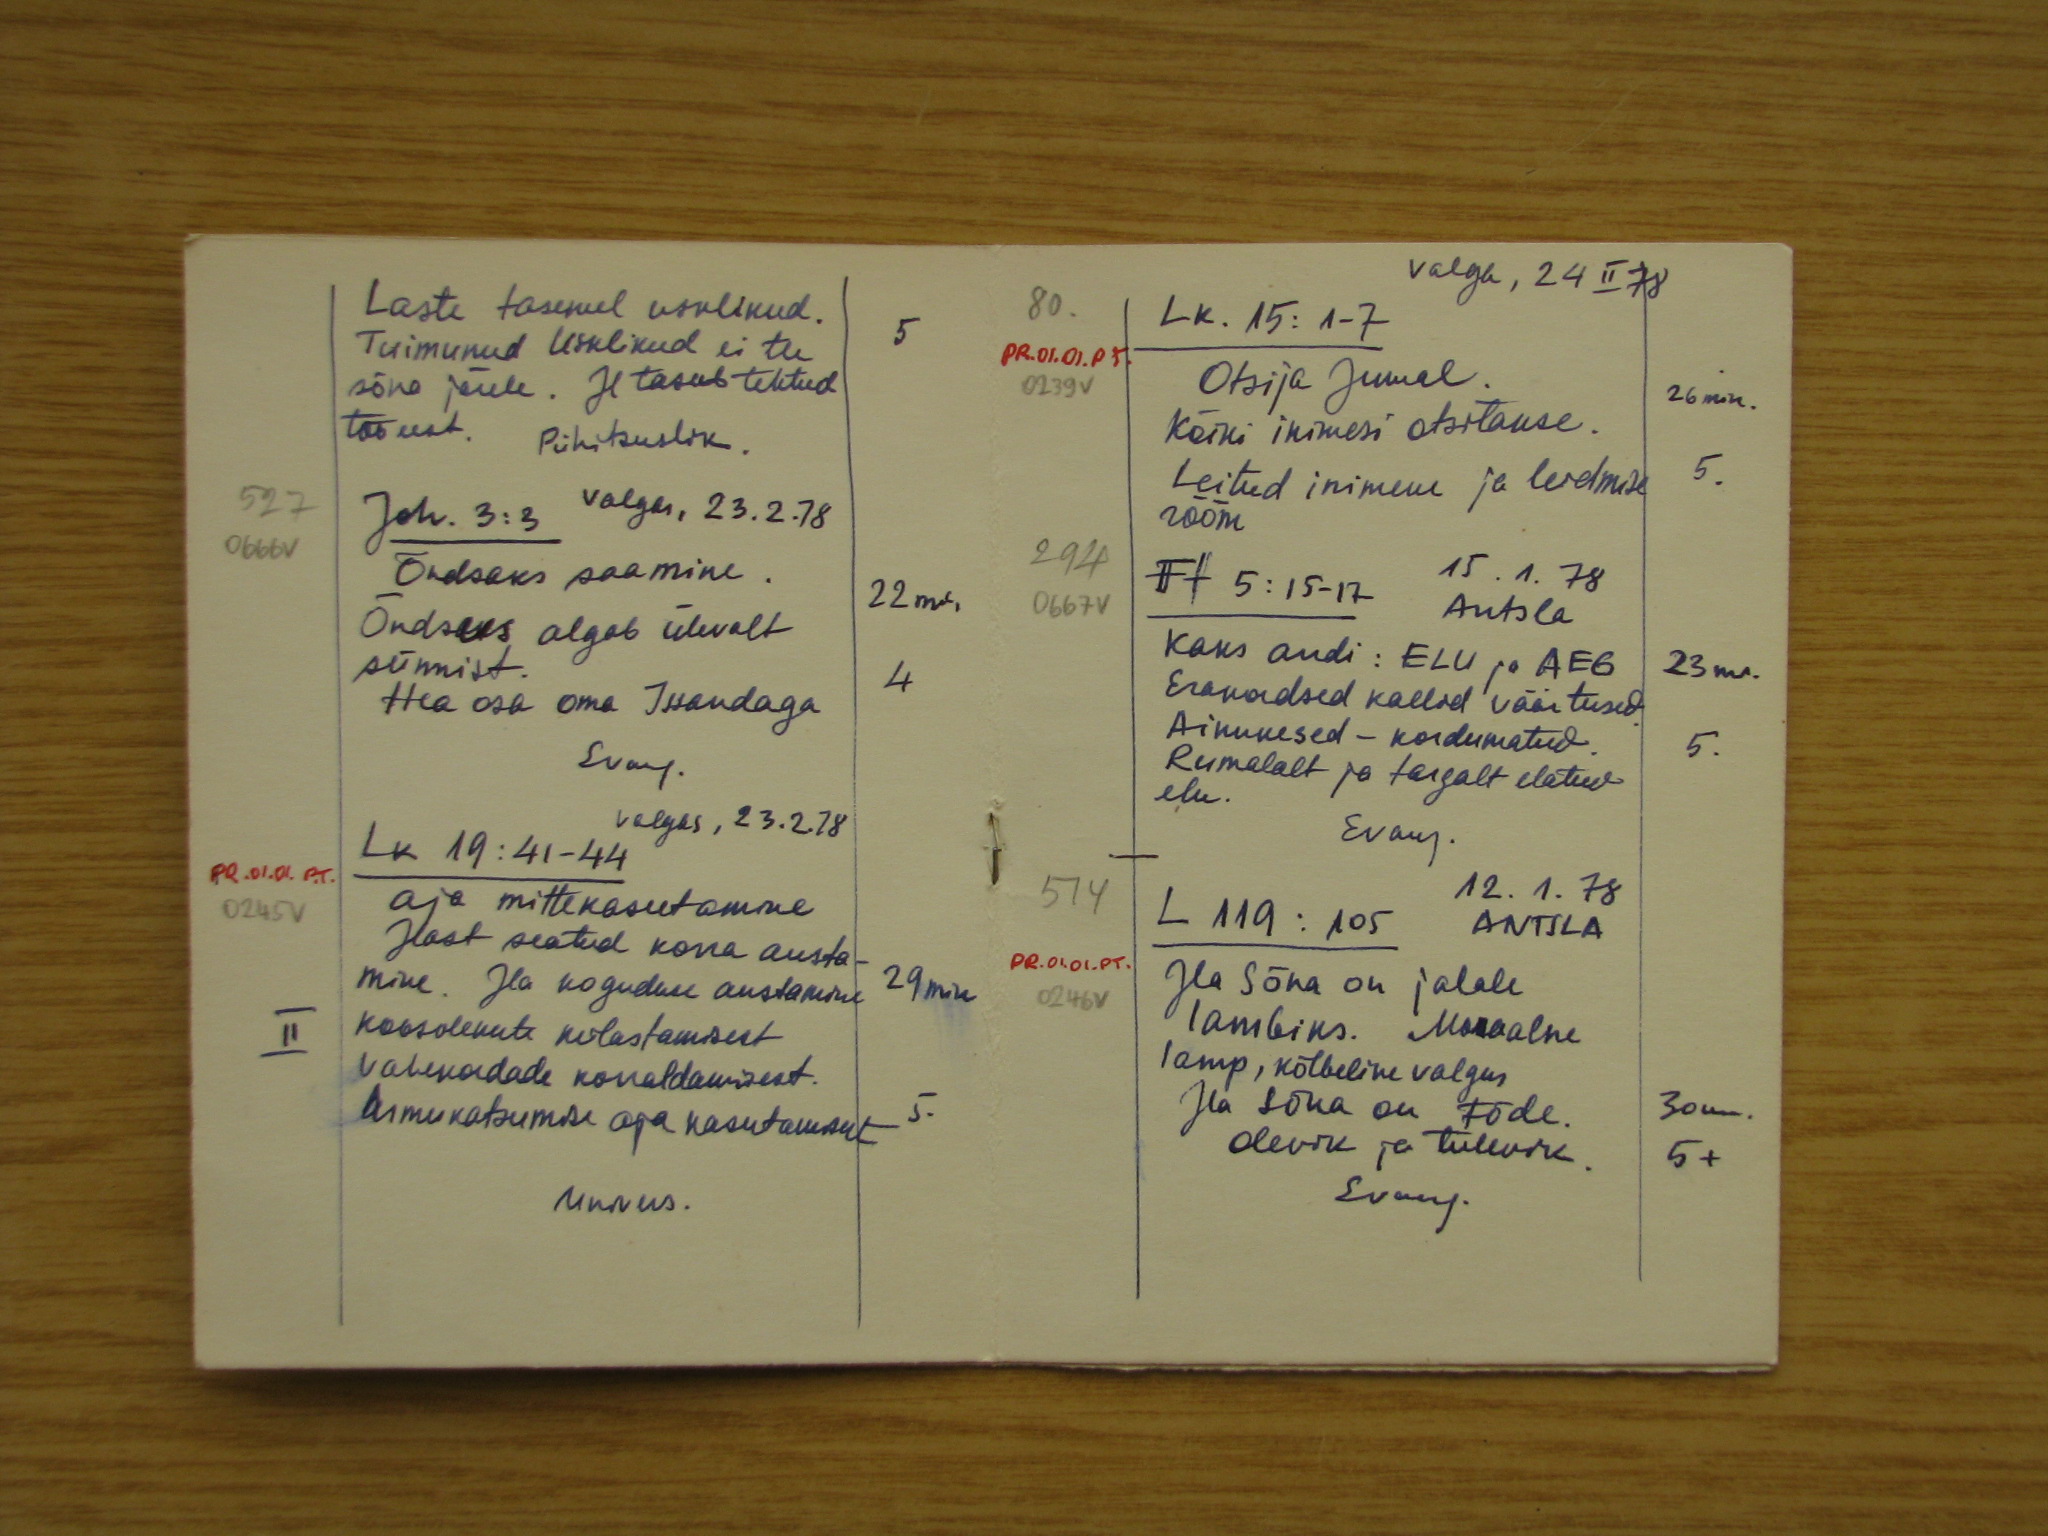 Laste tasemel usklikud.
5
Tuimunud Usklikud ei tee
sõna järele. Jl tasub tehtud
töö eest. Pühitsuslik.
527
Joh. 3:3 Valgas, 23.2.78
0666V
Õndsaks saamine.
22 min.
Õndsus algab ülevalt
sünnist.
4
Hea osa oma Issandaga
Evang.
Valgas, 23.2.78
Lk 19:41-44
PR.01.01.PT.
0245V
Aja mittekasutamine
Jlast seatud korra austa-
mine. Jla koguduse austamine
29 min
II
koosolekute külastamisest
vahekordade korraldamisest.
Armukatsumise aja kasutamisest
5.
Univers.
Valga, 24 II 78
80.
Lk. 15: 1-7
PR.01.01.PT.
0239V
Otsija Jumal.
26 min.
Kõiki inimesi otsitakse.
Leitud inimene ja leidmise
5.
rõõm
294
5:15-17 15.1.78
0667V
Antsla
Kaks andi: ELU ja AEG
23 min.
Erakordsed kallid väärtused
Ainukesed - kordumatud.
5.
Rumalalt ja targalt elatud
elu.
Evang.
574
12.1.78
L 119:105
ANTSLA
PR.01.01.PT.
0246V
Jla Sõna on jalale
lambiks. Moraalne
lamp, kõlbeline valgus
Jla Sõna on Tõde.
30 min.
Olevik ja tulevik.
5+
Evang.